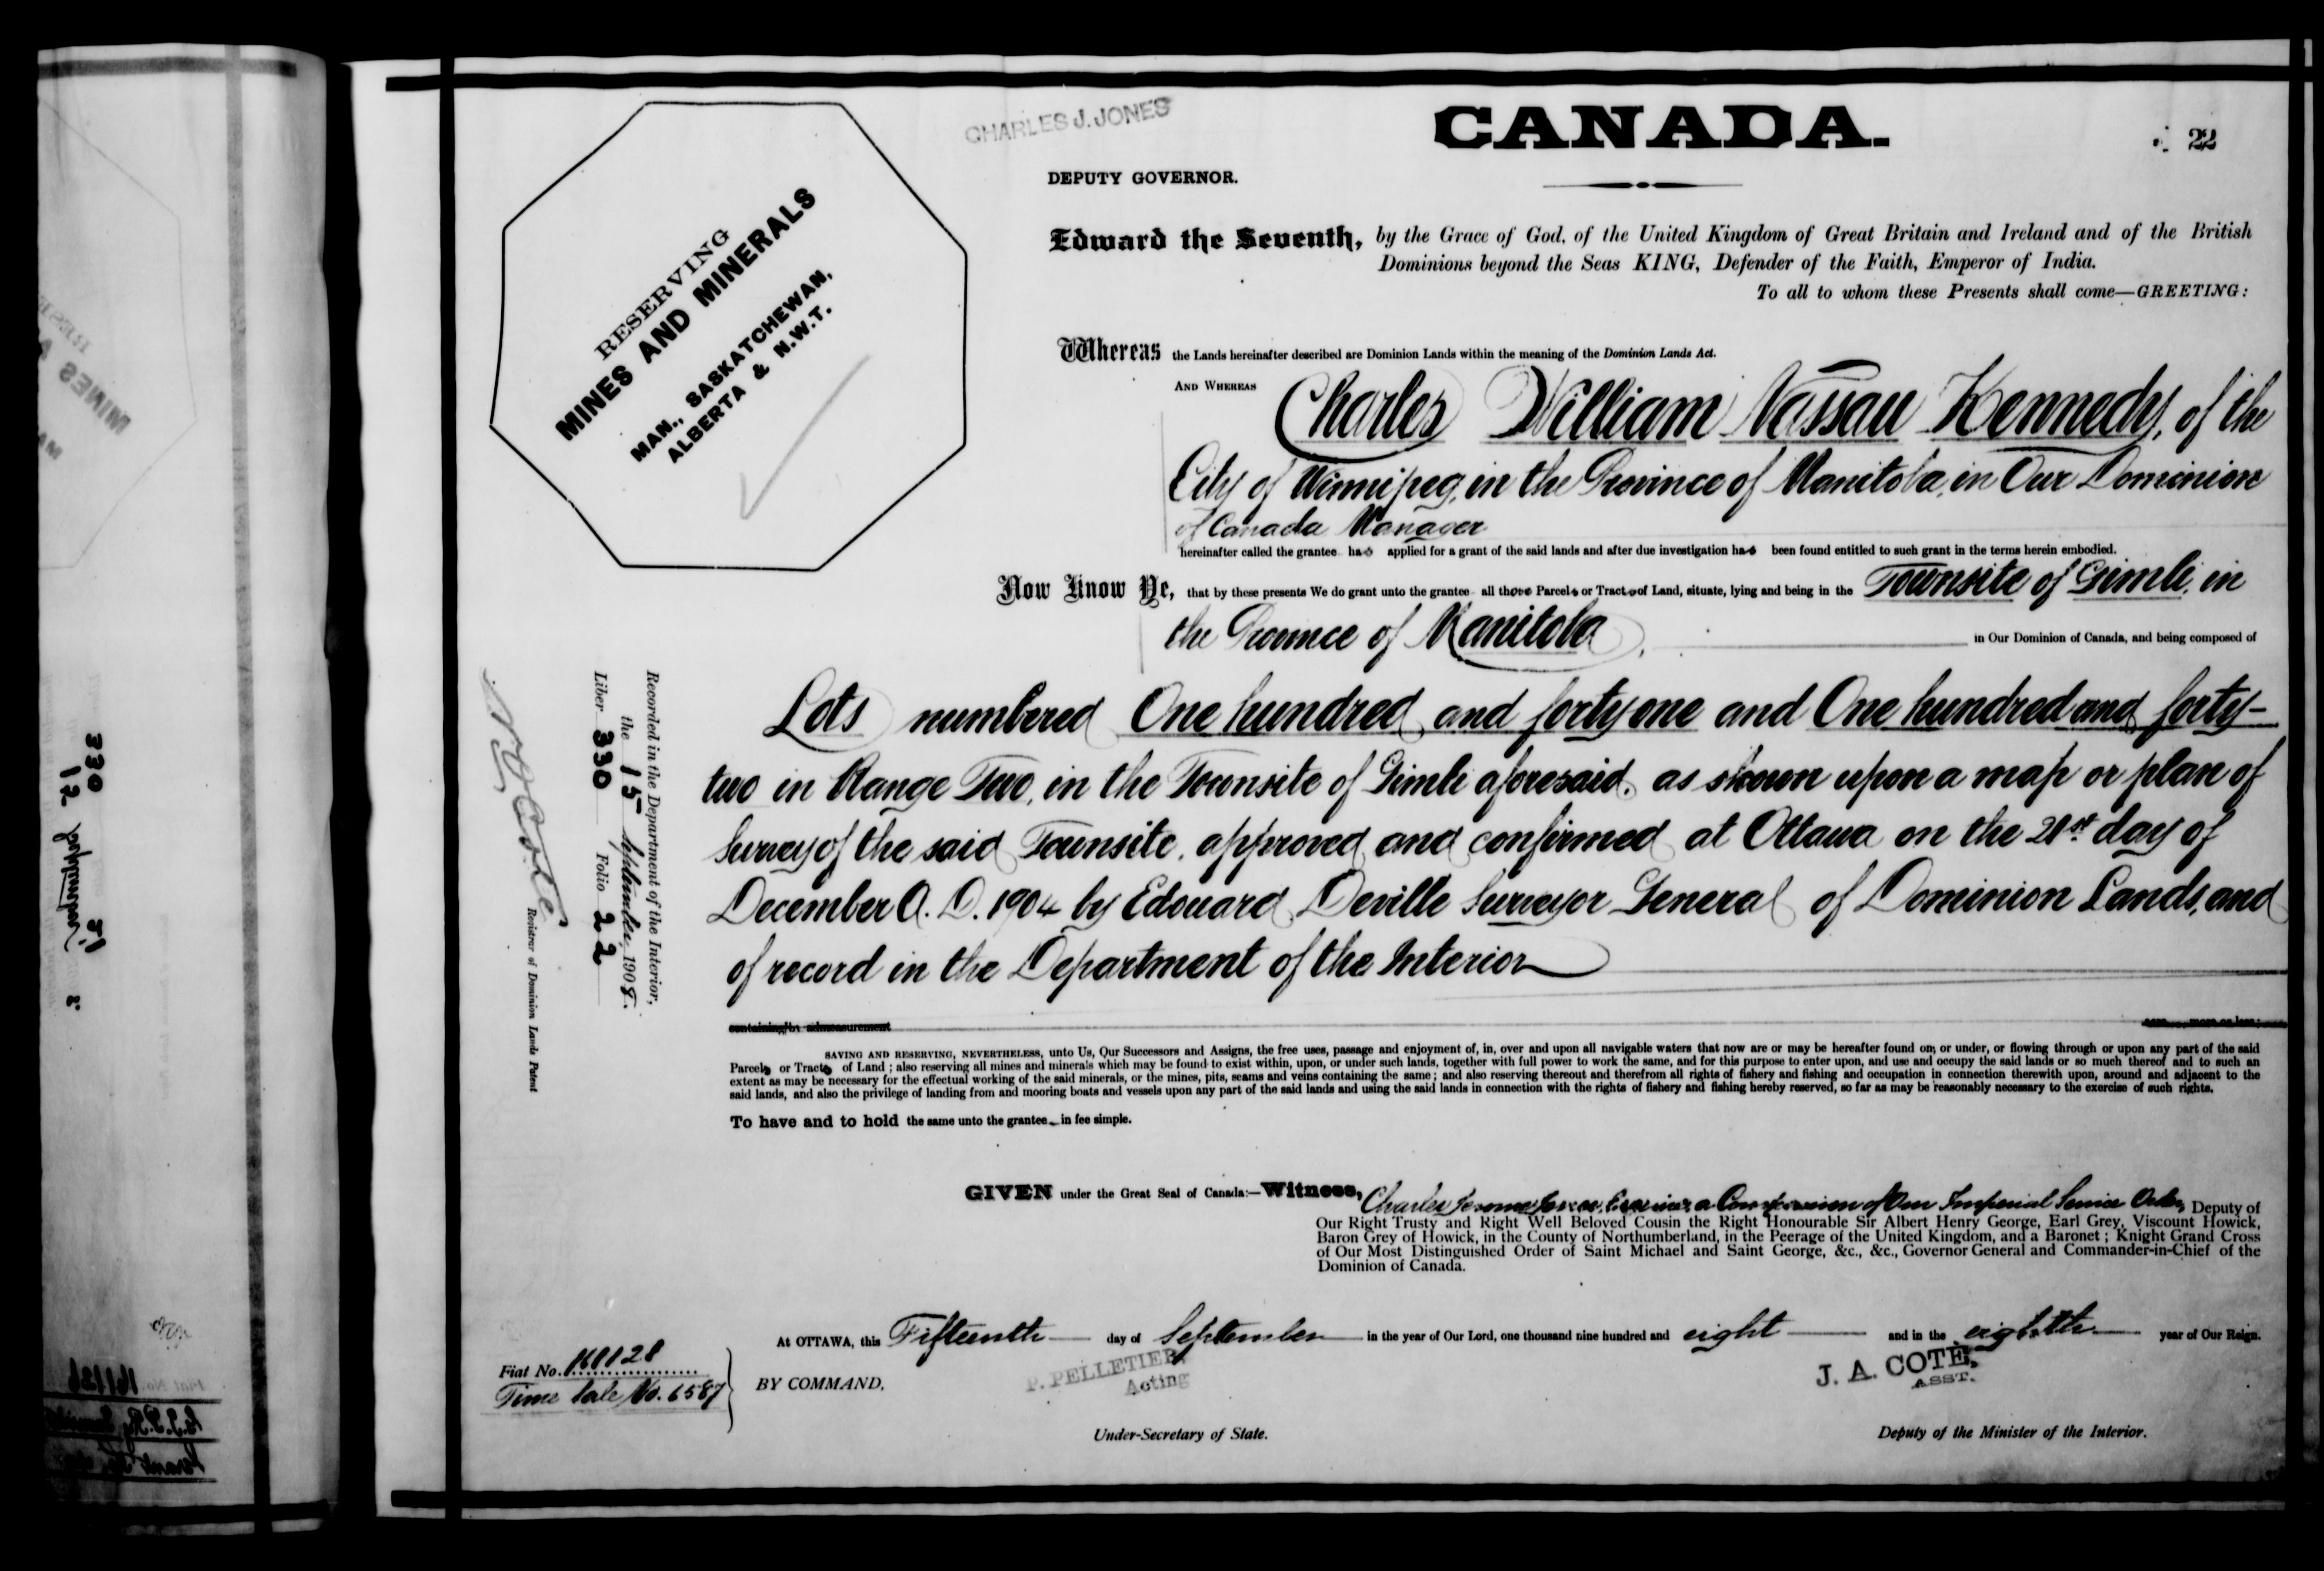 CHARLES J. JONES
CANADA.
22
DEPUTY GOVERNOR.
RESERVING
MINES AND MINERALS
MAN., SASKATCHEWAN,
ALBERTA & N.W.T.
Edward the Seventh, by the Grace of God, of the United Kingdom of Great Britain and Ireland and of the British
Dominions beyond the Seas KING, Defender of the Faith, Emperor of India.
To all to whom these Presents shall come—GREETING:
Whereas the Lands hereinafter described are Dominion Lands within the meaning of the Dominion Lands Act.
AND WHEREAS Charles William Nassau Kennedy, of the
City of Winnipeg, in the Province of Manitoba, in Our Dominion
of Canada Manager
hereinafter called the grantee has applied for a grant of the said lands and after due investigation has been found entitled to such grant in the terms herein embodied.
Now Know Ye, that by these presents We do grant unto the grantee all those Parcels or Tracts of Land, situate, lying and being in the Townsite of Gimli, in
the Province of Manitoba, in Our Dominion of Canada, and being composed of
Lots numbered One hundred and forty one and One hundred and forty-
two in Range Two, in the Townsite of Gimli aforesaid, as shown upon a map or plan of
Survey of the said Townsite, approved and confirmed at Ottawa on the 21st day of
December A. D. 1904 by Edouard Deville Surveyor General of Dominion Lands, and
of record in the Department of the Interior
containing by admeasurement acres, more or less;
SAVING AND RESERVING, NEVERTHELESS, unto Us, Our Successors and Assigns, the free uses, passage and enjoyment of, in, over and upon all navigable waters that now are or may be hereafter found on, or under, or flowing through or upon any part of the said
Parcels or Tracts of Land; also reserving all mines and minerals which may be found to exist within, upon, or under such lands, together with full power to work the same, and for this purpose to enter upon, and use and occupy the said lands or so much thereof and to such an
extent as may be necessary for the effectual working of the said minerals, or the mines, pits, seams and veins containing the same; and also reserving thereout and therefrom all rights of fishery and fishing and occupation in connection therewith upon, around and adjacent to the
said lands, and also the privilege of landing from and mooring boats and vessels upon any part of the said lands and using the said lands in connection with the rights of fishery and fishing hereby reserved, so far as may be reasonably necessary to the exercise of such rights.
To have and to hold the same unto the grantee in fee simple.
GIVEN under the Great Seal of Canada:—Witness, Charles Jerome Jones, Esquire, a Companion of Our Imperial Service Order, Deputy of
Our Right Trusty and Right Well Beloved Cousin the Right Honourable Sir Albert Henry George, Earl Grey, Viscount Howick,
Baron Grey of Howick, in the County of Northumberland, in the Peerage of the United Kingdom, and a Baronet; Knight Grand Cross
of Our Most Distinguished Order of Saint Michael and Saint George, &c., &c., Governor General and Commander-in-Chief of the
Dominion of Canada.
At OTTAWA, this Fifteenth day of September in the year of Our Lord, one thousand nine hundred and eight and in the eighth year of Our Reign.
Fiat No. 161128
Time Sale No. 6587
BY COMMAND,
P. PELLETIER,
Acting
Under-Secretary of State.
J. A. COTE,
ASST.
Deputy of the Minister of the Interior.
Recorded in the Department of the Interior,
the 15 September, 1908.
Liber 330 Folio 22
Registrar of Dominion Lands Patent
330